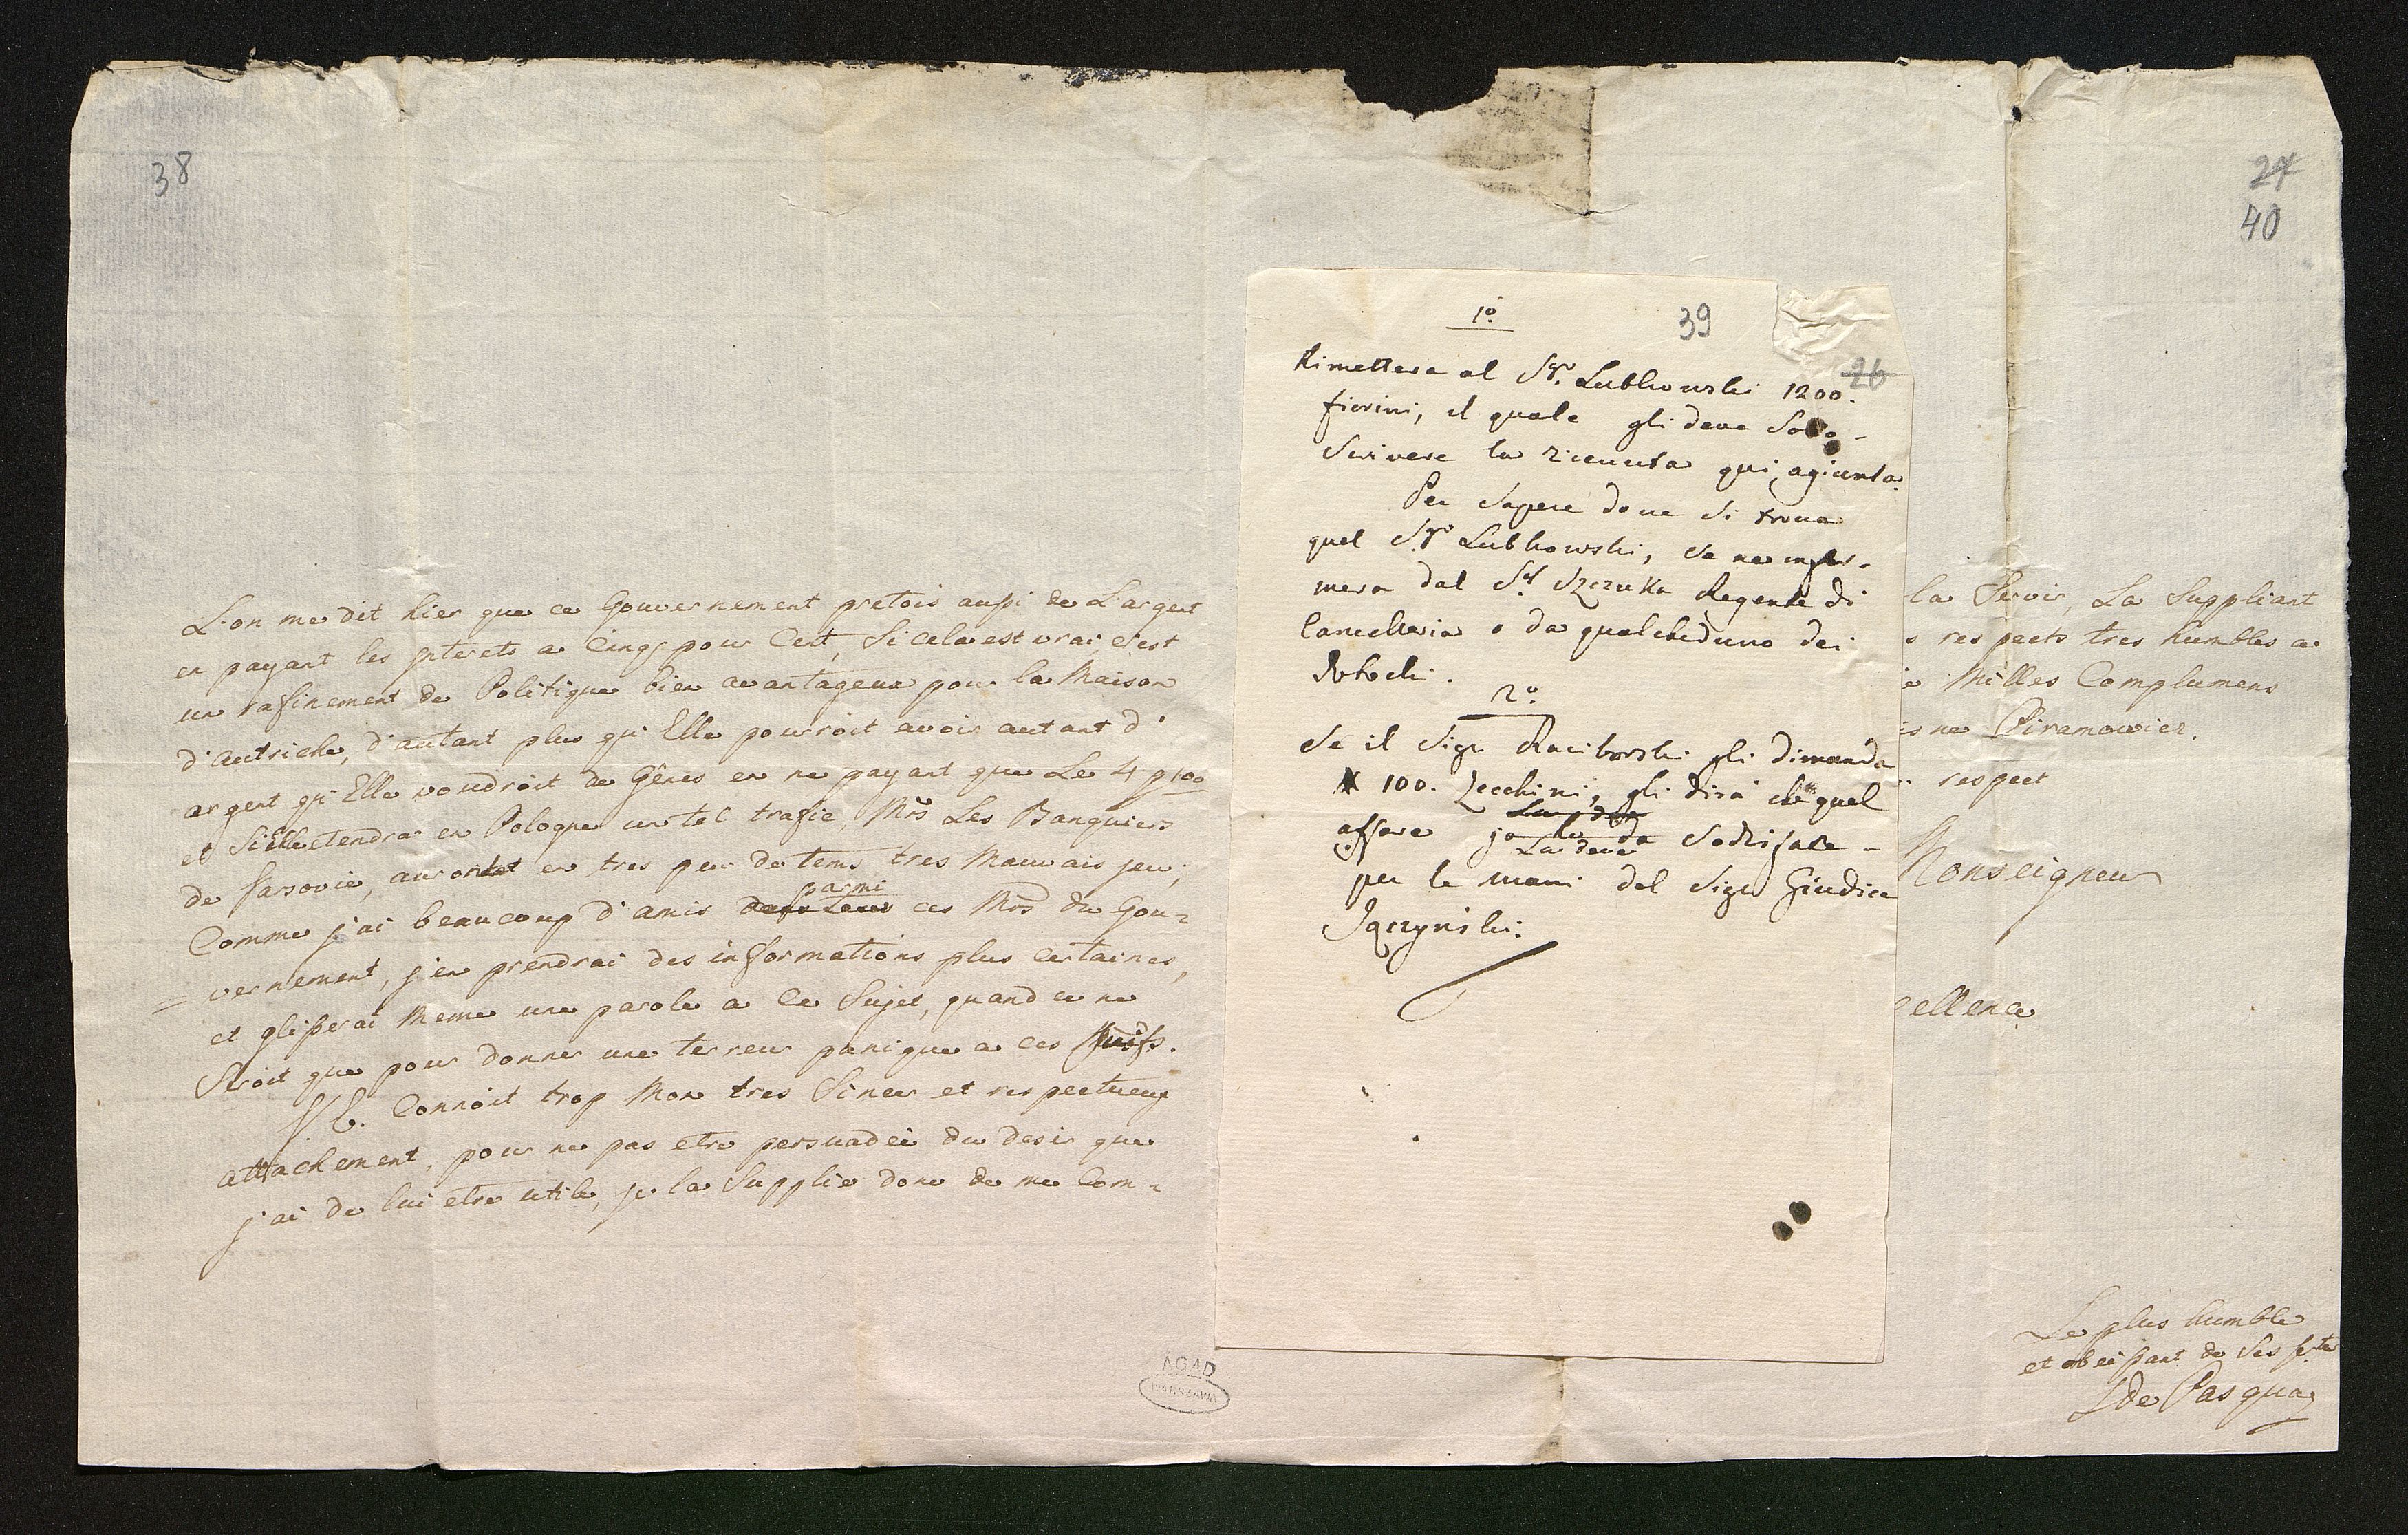 38
L'on me dit hier que ce Gouvernement pretois aussi de L'argent
en payant les jnterets a Cinq pour Cent, Si cela est vrai, c'est
un rafinement de Politique bien avantageux pour la Maison
d'autriche, d'autant plus qu'Elle pourroit avoir autant d'
argent qu'Elle voudroit de Gênes en ne payant que Le 4 p 100
et Si Elle etendra en Pologne un tel trafic, Mrs Les Banquiers
de Varsovie, auront en tres peu de tems tres Mauvais jeu;
Comme j'ai beaucoup d'amis parmi ces Mrs du Gou=
=vernement, j'en prendrai des informations plus certaines,
et glisserai meme une parole a ce Sujet, quand ce ne
Seroit que pour donner une terreur panique a ces Juifs.
V. E. Connoit trop Mon tres Sincer et respectueux
attachement, pour ne pas etre persuadée du desir que
j'ai de lui etre utile, je la Supplie donc de me Com=
AGAD
WARSZAWA
1º
39
26
Rimettera al Sgr. Lubkowski 1200.
fiorini, il quale gli deve Soto-
Scrivere la ricevuta qui, agiunta.
Per Sapere dove Si trova
quel Sgr Lubkowski, Se ne infor-
mera dal Sgr Szczuka Regente di
Cancelleria o da qualcheduno dei
2º
Se il Sigr Raciborski gli dimanda
100. Zecchini, gli dirà che quel
affare jo La deve Sodisfare -
per le mani del Sigr Giudice
Jączynski.
27
40
la Servir, La Suppliant
s respects tres humbles a
Milles Complumens
ne Piramowiez.
respect
Monseigneur
cellence
Le plus humble
et obeissant de Ses
L de Pasqua